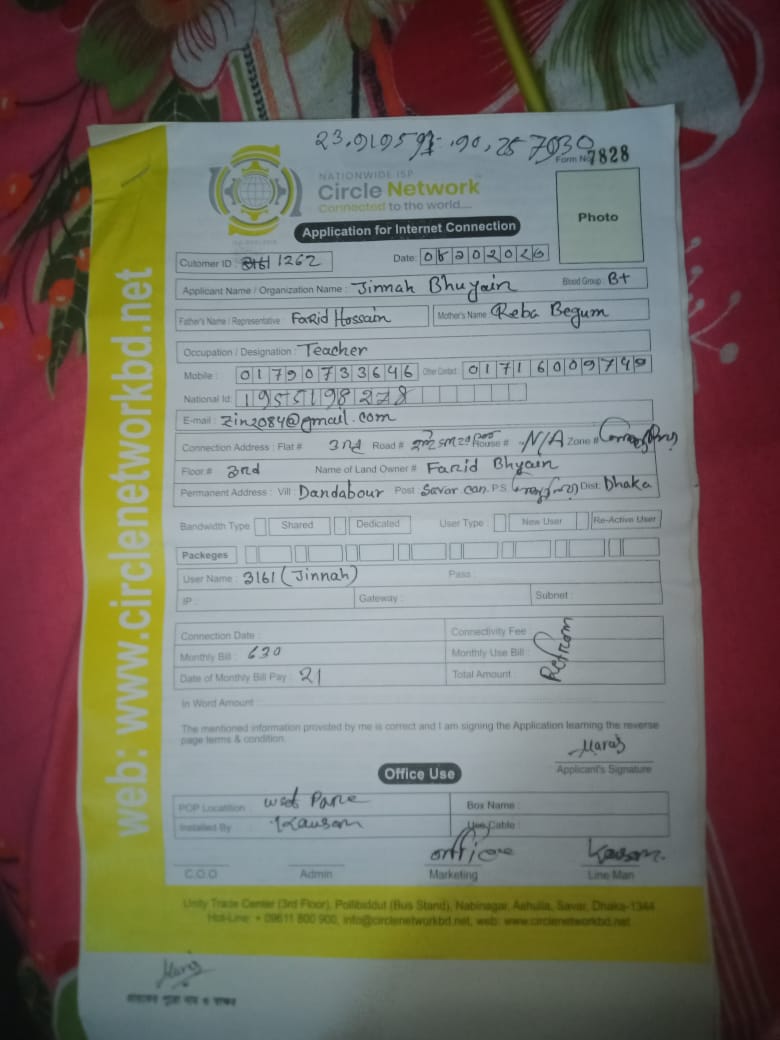 Form No 7828
NATIONWIDE ISP
Circle Network
Connected to the world....
Application for Internet Connection
Photo
Cutomer ID : 1262
Date:
Applicant Name / Organization Name : Jinnah Bhuyain Blood Group : B+
Father's Name / Representative : Farid Hossain Mother's Name : Reba Begum
Occupation / Designation : Teacher
Mobile : 01790733646 Other Contact : 01716009749
National Id:
E-mail : Zin2084@gmail.com
Connection Address : Flat # 3rd Road # House # N/A Zone #
Floor # 3rd Name of Land Owner # Farid Bhyain
Permanent Address : Vill Dandabour Post : Savar can. P.S Dist: Dhaka
Bandwidth Type Shared Dedicated User Type : New User Re-Active User
Packeges
User Name : 3161 (Jinnah) Pass :
IP : Gateway : Subnet :
Connection Date : Connectivity Fee :
Monthly Bill : 630 Monthly Use Bill :
Date of Monthly Bill Pay : 21 Total Amount :
In Word Amount :
The mentioned information provided by me is correct and I am signing the Application learning the reverse
page terms & condition.
Applicant's Signature
Office Use
POP Locatition : Box Name :
Installed By : Use Cable :
office
C.O.O Admin Marketing Line Man
Unity Trade Center (3rd Floor), Pollibiddut (Bus Stand), Nabinagar, Ashulia, Savar, Dhaka-1344
Hot-Line: + 09611 800 900, info@circlenetworkbd.net, web: www.circlenetworkbd.net
web: www.circlenetworkbd.net